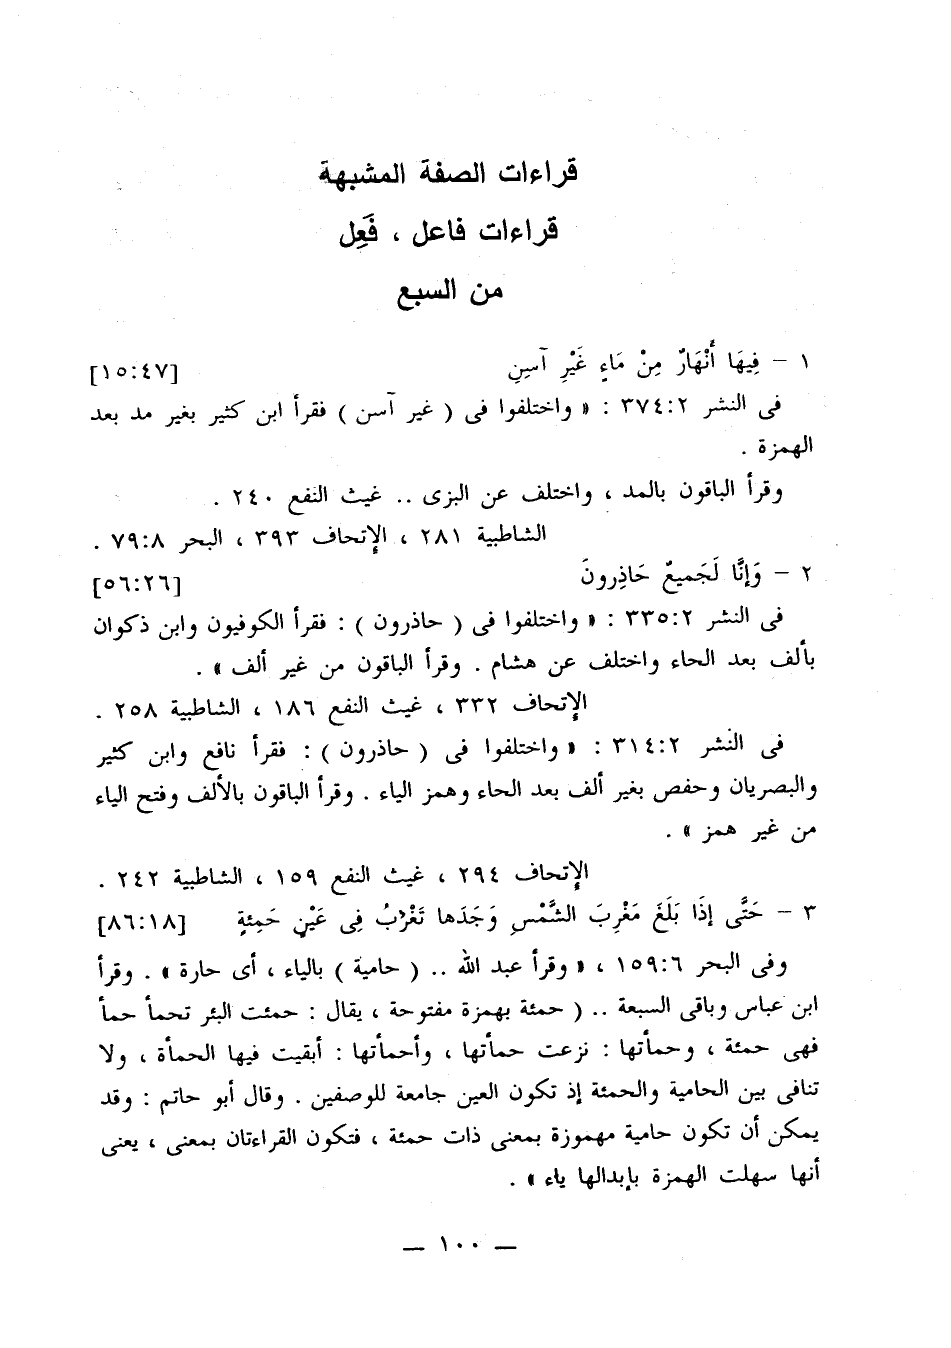 قراءات الصفة المشبهة
قراءات فاعل ، فَعِل
من السبع
١ – فِيهَا أَنْهَارٌ مِنْ مَاءٍ غَيْرِ آسِنٍ [١٥:٤٧]
فى النشر ٣٧٤:٢ : « واختلفوا فى ( غير آسن ) فقرأ ابن كثير بغير مد بعد
الهمزة .
وقرأ الباقون بالمد ، واختلف عن البزى .. غيث النفع ٢٤٠ .
الشاطبية ٢٨١ ، الإتحاف ٣٩٣ ، البحر ٧٩:٨ .
٢ – وَإِنَّا لَجَمِيعٌ حَاذِرونَ [٥٦:٢٦]
فى النشر ٣٣٥:٢ : « واختلفوا فى ( حاذرون ) : فقرأ الكوفيون وابن ذكوان
بألف بعد الحاء واختلف عن هشام . وقرأ الباقون من غير ألف » .
الإتحاف ٣٣٢ ، غيث النفع ١٨٦ ، الشاطبية ٢٥٨ .
فى النشر ٣١٤:٢ : « واختلفوا فى ( حاذرون ) : فقرأ نافع وابن كثير
والبصريان وحفص بغير ألف بعد الحاء وهمز الياء . وقرأ الباقون بالألف وفتح الياء
من غير همز » .
الإتحاف ٢٩٤ ، غيث النفع ١٥٩ ، الشاطبية ٢٤٢ .
٣ – حَتَّى إِذَا بَلَغَ مَغْرِبَ الشَّمْسِ وَجَدَها تَغْرُبُ فِى عَيْنٍ حَمِئةٍ [٨٦:١٨]
وفى البحر ١٥٩:٦ ، « وقرأ عبد الله .. ( حامية ) بالياء ، أى حارة » . وقرأ
ابن عباس وباقى السبعة .. ( حمئة بهمزة مفتوحة ، يقال : حمئت البئر تحمأ حمأ
فهى حمئة ، وحمأتها : نزعت حمأتها ، وأحمأتها : أبقيت فيها الحمأة ، ولا
تنافى بين الحامية والحمئة إذ تكون العين جامعة للوصفين . وقال أبو حاتم : وقد
يمكن أن تكون حامية مهموزة بمعنى ذات حمئة ، فتكون القراءتان بمعنى ، يعنى
أنها سهلت الهمزة بإبدالها ياء » .
— ١٠٠ —